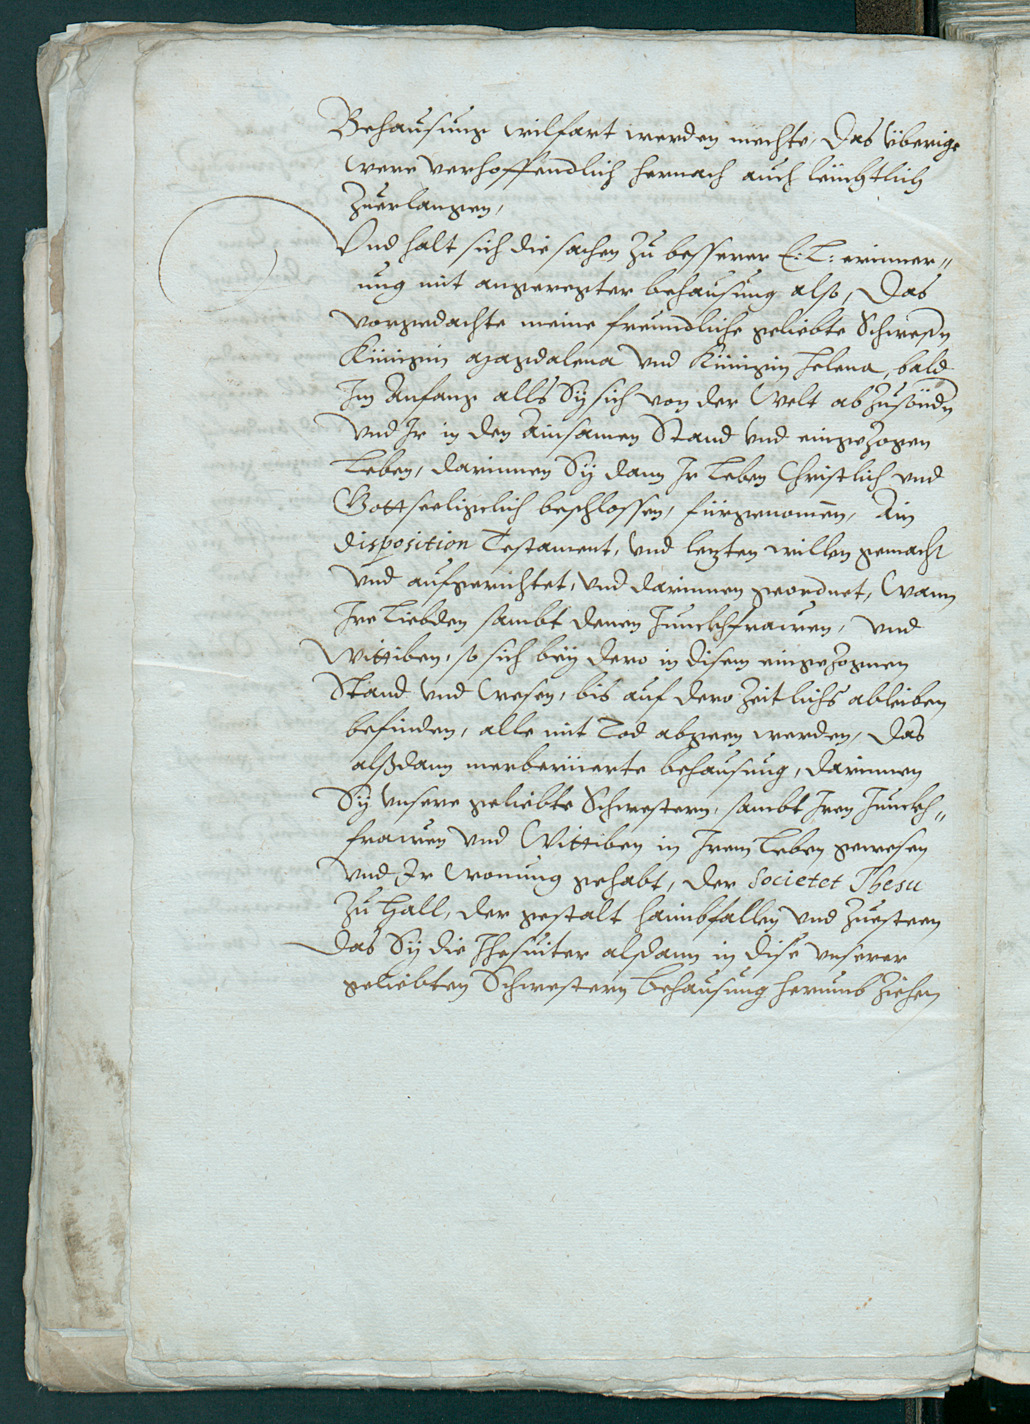 Behausung wilfart werden mechte, Das überige
were verhoffendlich hernach auch leüchtlich
Zuerlangen,
Vnd halt sich die sachen zu besserer E: L: erinner„
ung mit angeregter behausung also, Das
vorgedachte meine freundliche geliebte Schwestn
Künigin Magdalena vnd Künigin Helena, bald
Im Anfang alls Sÿ sich von der Welt abzusöndn
vnd Ir in den Ainsamen Stand vnd eingezogen
Leben, darinnen Sÿ dann Ir Leben Christlich vnd
Gottseeligclich beschlossen, fürgenomen, Ain
disposition Testament, vnd letzten willen gemacht
vnd aufgerichtet, vnd darinnen geordnet, Wann
Ire Liebden sambt denen Junckhfrawen, vnd
Wittiben, so sich beÿ dero in disem eingezognen
Stand vnd Wesen, bis auf dero Zeitlichs ableiben
befinden, alle mit Tod abgeen werden, Das
alßdann merberüerte behausung, darinnen
Sÿ vnsere geliebte Schwestern, sambt Iren Junckh„
frawen vnd Wittiben in Irem Leben gewesen
vnd Ir Wonung gehabt, der Societet Jhesu
Zu Hall, der gestalt haimbfallen vnd Zuesteen
Das Sÿ die Jhesuiter alsdann in dise vnserer
geliebten Schwestern Behausung herumb ziehen